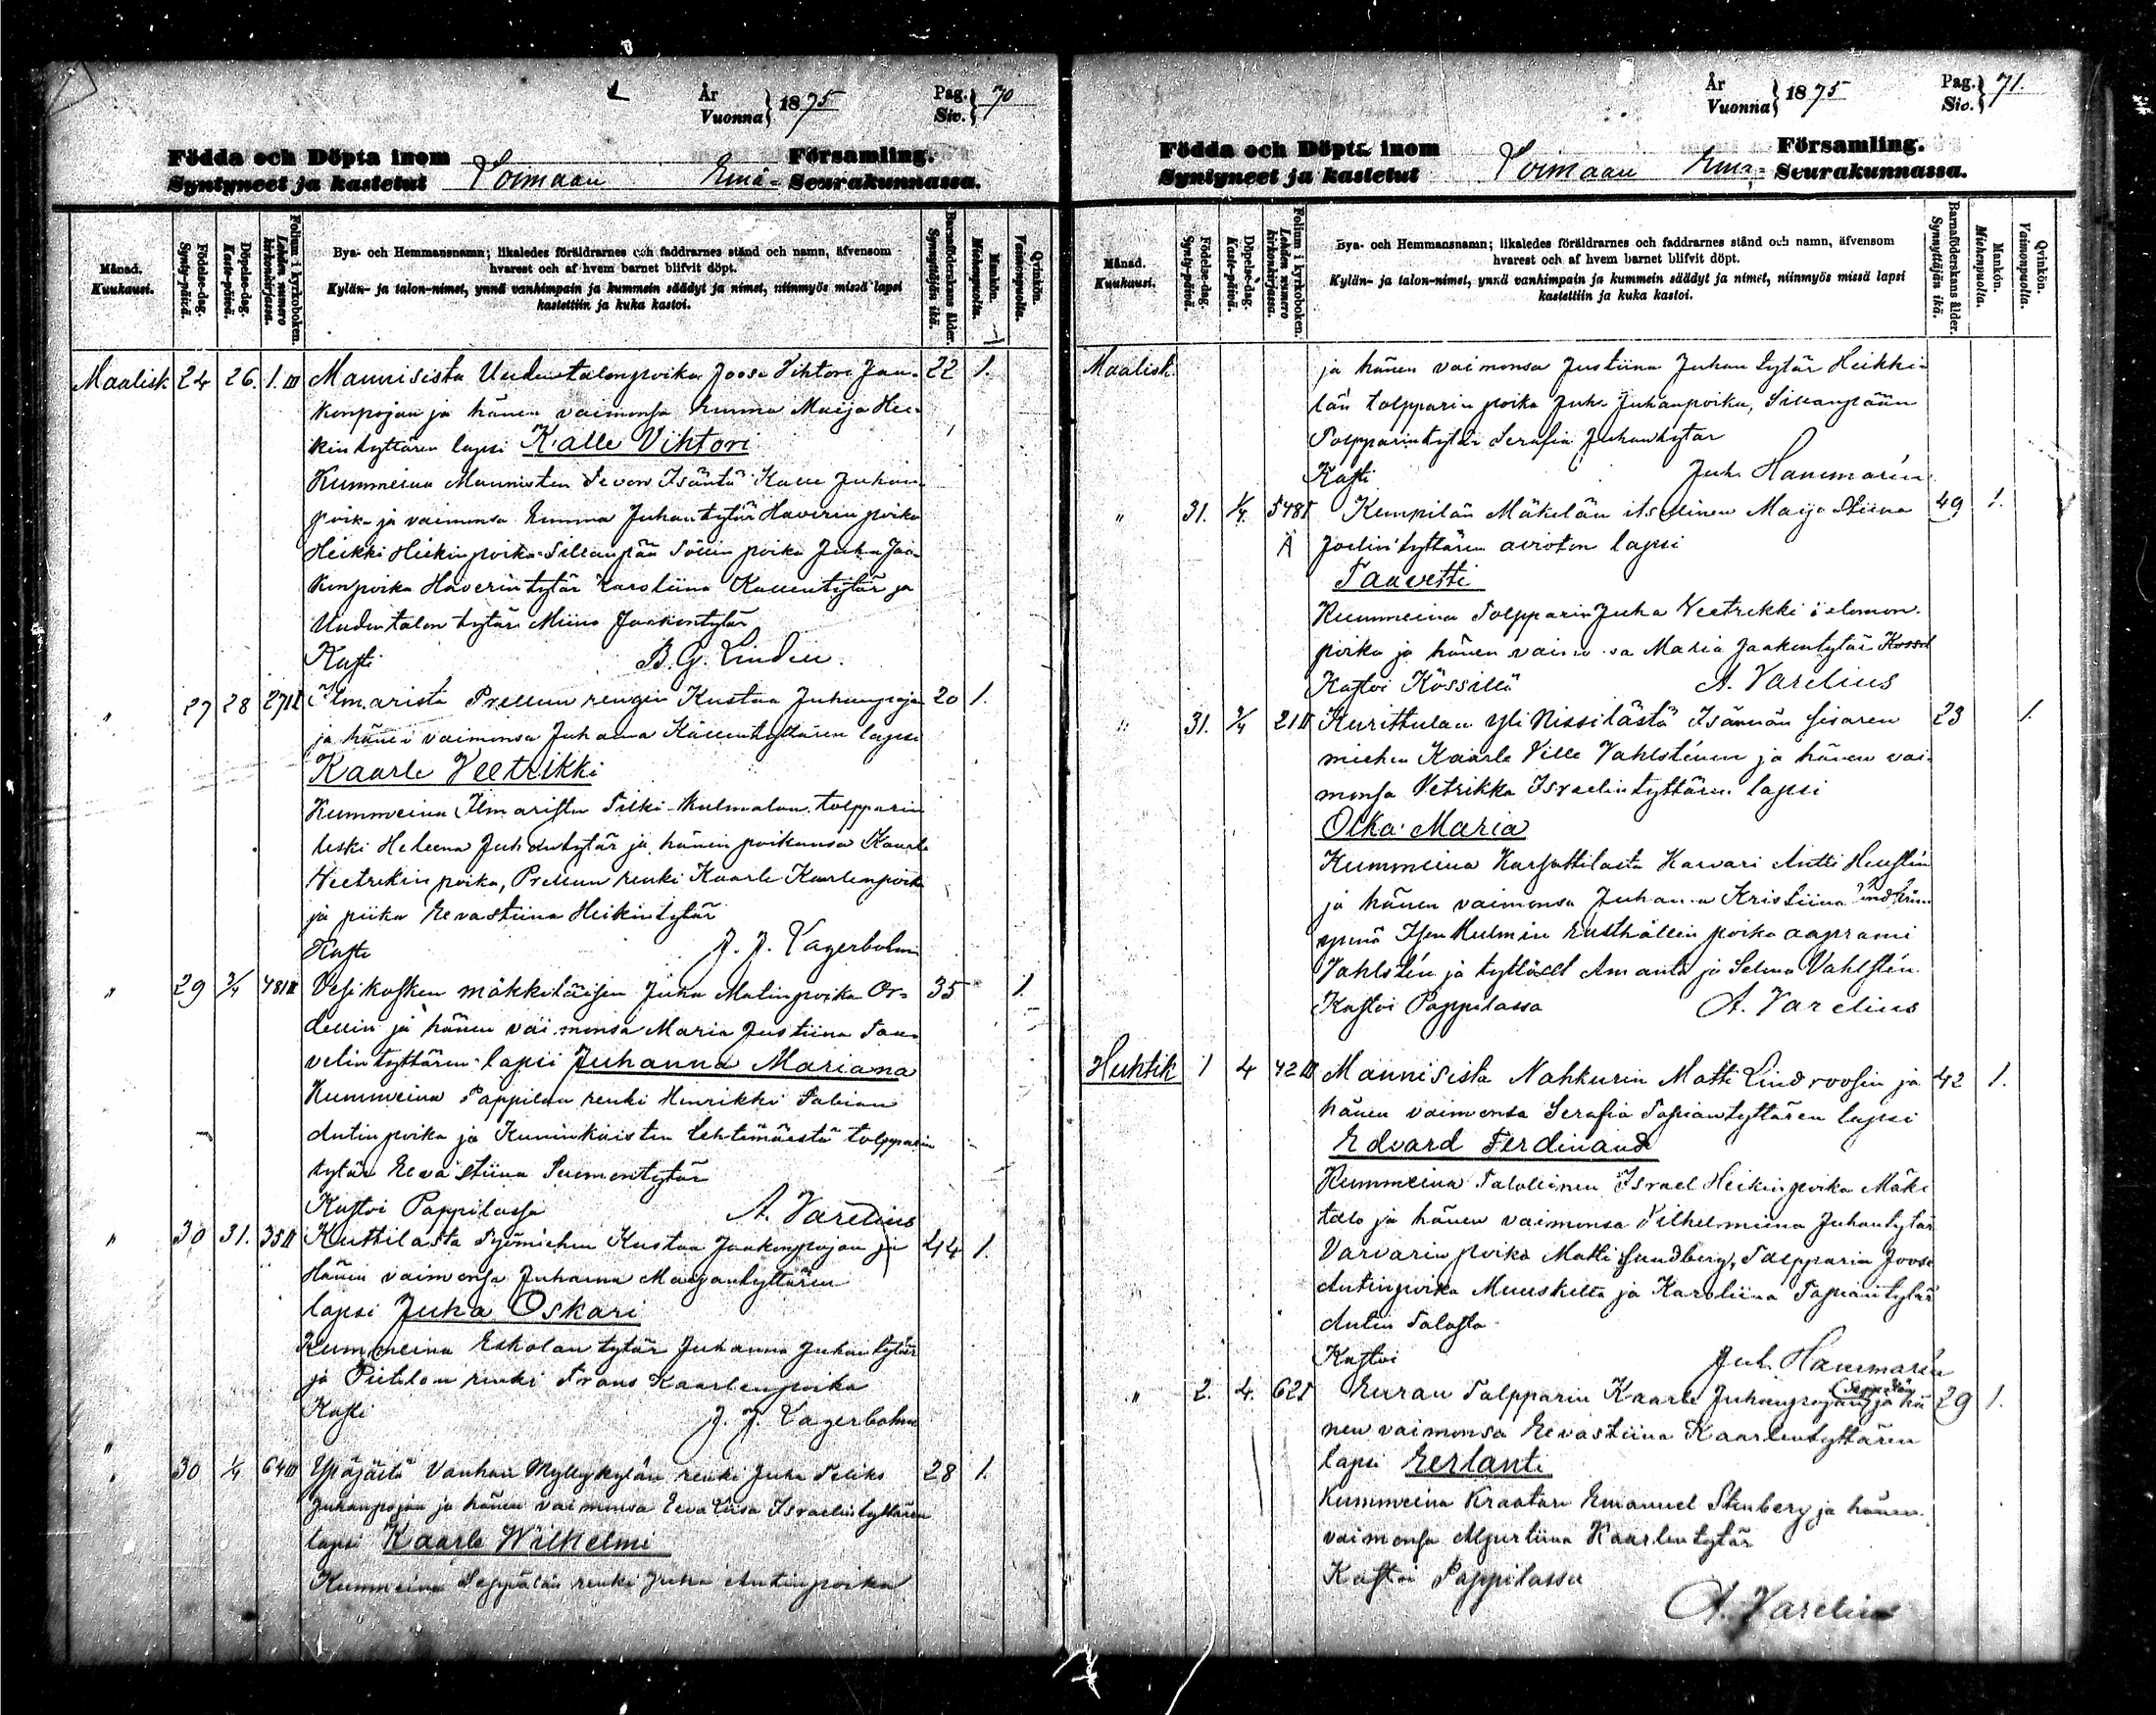 År
Vuonna } 1875
Pag.
Siv. } 70
Födda och Döpta inom
Syntyneet ja kastetut
Loimaan Emä-
Församling.
Seurakunnassa.
Månad.
Kuukausi.
Födelse-dag.
Synty-päivä.
Döpelse-dag.
Kaste-päivä.
Folium i kyrkoboken.
Lehden numero kirkonkirjassa.
Bya- och Hemmansnamn; likaledes föräldrarnes och faddrarnes stånd och namn, äfvensom
hvarest och af hvem barnet blifvit döpt.
Kylän- ja talon-nimet, ynnä vanhimpain ja kummein säädyt ja nimet, niinmyös missä lapsi
kastettiin ja kuka kastoi.
Barnaföderskans ålder.
Synnyttäjän ikä.
Mankön.
Miehenpuolta.
Qvinkön.
Vaimonpuolta.
Maalisk 24 26. 1.III Mannisista Uudentalonpoika Joose Vihtori Jaa- 22 1.
konpojan ja hänen vaimonsa Emma Maija Hei-
kintyttären lapsi Kalle Vihtori
Kummeina Mannisten Isäntä Kalle Juhan
poika ja vaimonsa Emma Juhantytär Haverin poika
Heikki Heikinpoika Sillanpään poika Juha Jaa-
konpoika Haverintytär Karoliina Kallentytär ja
Uudentalon tytär Miina Jaakontytär
Kasti B. G. Linden.
" 27 28 27II Ilmarista Prellun rengin Kustaa Juhanpojan 20 1.
ja hänen vaimonsa Juhanna Kallentyttären lapsi
Kaarle Veetrikki
Kummeina Ilmaristen tolpparin
leski Heleena Juhantytär ja hänen poikansa Kaarle
Veetrikin poika, Prellun renki Kaarle Kaarlenpoika
ja piika Eevastiina Heikintytär
Kasti J. J. Lagerbohm
" 29 3/4 481II Vesikosken mäkkiläisen Juha Matinpoika Or- 35 1.
dellin ja hänen vaimonsa Maria Justiina Taa-
velintyttären lapsi Juhanna Mariana
Kummeina Pappilan renki Henrikki Fabian
Antinpoika ja Kuninkaisten Lehtimäestä tolpparin
tytär Eevastiina Simontytär
Kastoi Pappilassa A. Varelius
" 30 31. 35II Kuttilasta Työmiehen Kustaa Jaakonpojan ja 44 1.
Hänen vaimonsa Juhanna Maijantyttären
lapsi Juha Oskari
Kummeina Eskolan tytär Juhanna Juhantytär
ja Pietilän renki Frans Kaarlenpoika
Kasti J. J. Lagerbohm
" 30 1/4 64III Ypäjältä Vanhan Myllykylän renki Juha Feliks 28 1.
Juhanpojan ja hänen vaimonsa Eeva Liisa Israelintyttären
lapsi Kaarle Wilhelmi
Kummeina Seppälän renki Juha Antinpoika
År
Vuonna } 1875
Pag.
Siv. } 71.
Födda och Döpta inom
Syntyneet ja kastetut
Loimaan Emä-
Församling.
Seurakunnassa.
Månad.
Kuukausi.
Födelse-dag.
Synty-päivä.
Döpelse-dag.
Kaste-päivä.
Folium i kyrkoboken.
Lehden numero kirkonkirjassa.
Bya- och Hemmansnamn; likaledes föräldrarnes och faddrarnes stånd och namn, äfvensom
hvarest och af hvem barnet blifvit döpt.
Kylän- ja talon-nimet, ynnä vanhimpain ja kummein säädyt ja nimet, niinmyös missä lapsi
kastettiin ja kuka kastoi.
Barnaföderskans ålder.
Synnyttäjän ikä.
Mankön.
Miehenpuolta.
Qvinkön.
Vaimonpuolta.
Maalisk. ja hänen vaimonsa Justiina Juhan tytär Heikki-
län tolpparin poika Juha Juhanpoika, Sillanpään
Tolpparintytär Serafia Juhantytär
Kasti Juh. Hammarén
" 31. 1/4. 548I Kempilän Mäkelän itsellinen Maija Stiina 49 1.
Ä Joelintyttären avioton lapsi
Taavetti
Kummeina Tolpparin Juha Veetrikki Salomon-
poika ja hänen vaimonsa Maria Jaakontytär
Kastoi Kössillä A. Varelius
" 31. 3/4 21II Kurittulan Yli Nissilästä Isännän sisaren 23 1.
miehen Kaarle Ville Vahlsténin ja hänen vai-
monsa Vetrikka Israelintyttären lapsi
Olka Maria
Kummeina Karsattilasta Karvari Antti Hellstén
ja hänen vaimonsa Juhanna Kristiina Lindström
Vahlstén ja tyttäret Amanta ja Selma Vahlstén.
Kastoi Pappilassa A. Varelius
Huhtik 1 4 42III Mannisista Nahkurin Matti Lindroosin ja 42 1.
hänen vaimonsa Serafia Tapiantyttären lapsi
Edvard Ferdinand
Kummeina Talollinen Israel Heikinpoika Mäki-
talo ja hänen vaimonsa Vilhelmiina Juhantytär
Varvarin poika Matti Sundberg, Talpparin Joose
Antinpoika Muuskilta ja Karoliina Tapiantytär
Antin Talosta
Kastoi Juh. Hammarén
" 2. 4. 62I Euran Talpparin Kaarle Juhanpojan ja hä- 29 1.
nen vaimonsa Eevastiina Kaarlentyttären
lapsi Eerlanti
Kummeina Kraatari Emanuel Stenberg ja hänen
vaimonsa Kaarlentytär
Kastoi Pappilassa
A. Varelius